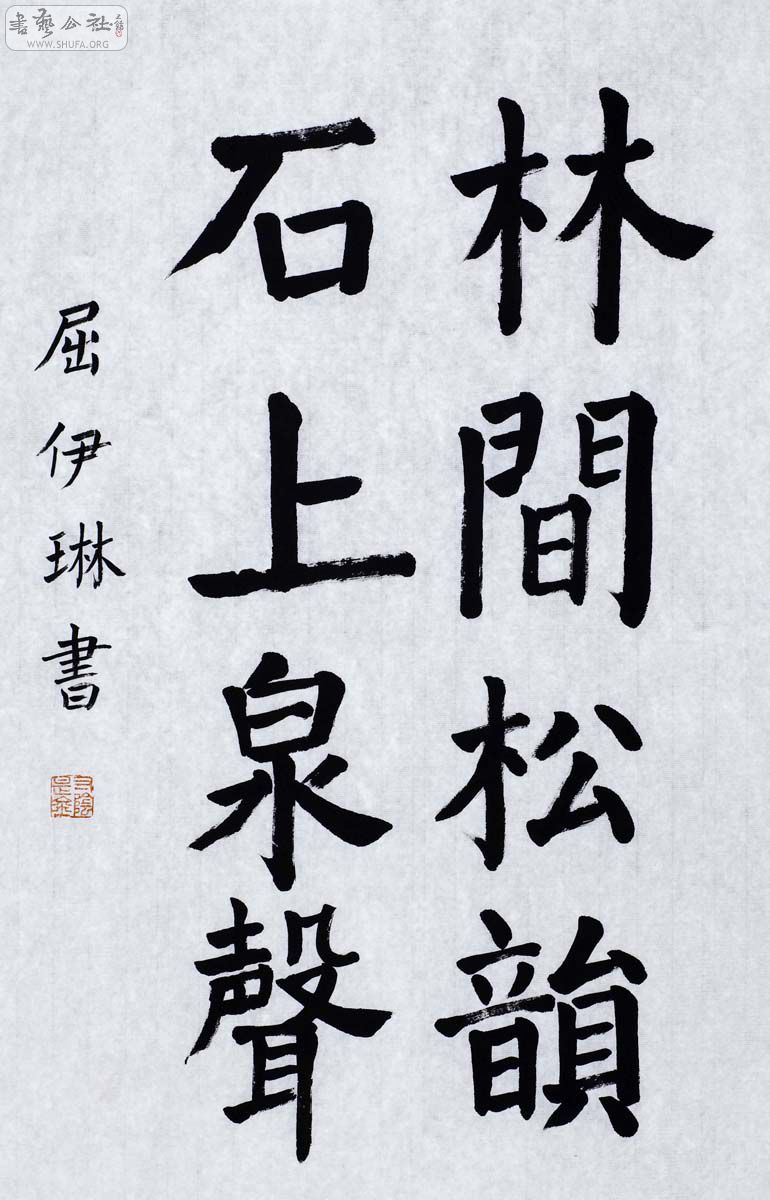 林間松韻
石上泉聲
屈伊琳書
書藝公社
WWW.SHUFA.ORG